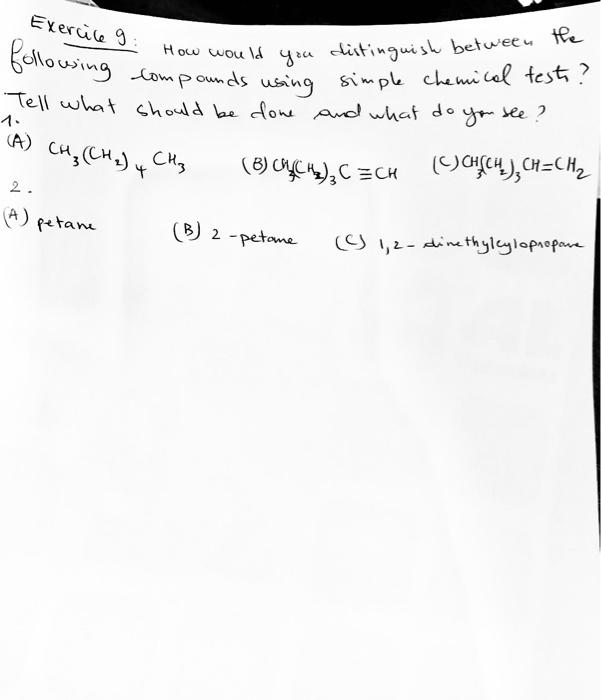 Exercice 9: How would you distinguish between the
following compounds using simple chemical tests?
Tell what should be done and what do you see?
1.
(A) CH₃(CH₂)₄CH₃ (B) CH₃(CH₂)₃C≡CH (C) CH₃(CH₂)₃CH=CH₂
2.
(A) petane (B) 2-petame (C) 1,2-dimethylcylopropane